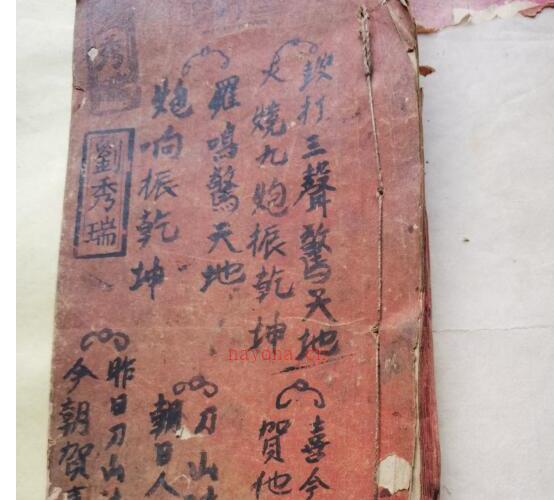 打三聲驚天地
火燒九炮振乾坤
羅鳴驚天地
炮响振乾坤
劉秀瑞
秀
喜今
賀他
刀山
朝日人
昨日刀山
今朝賀